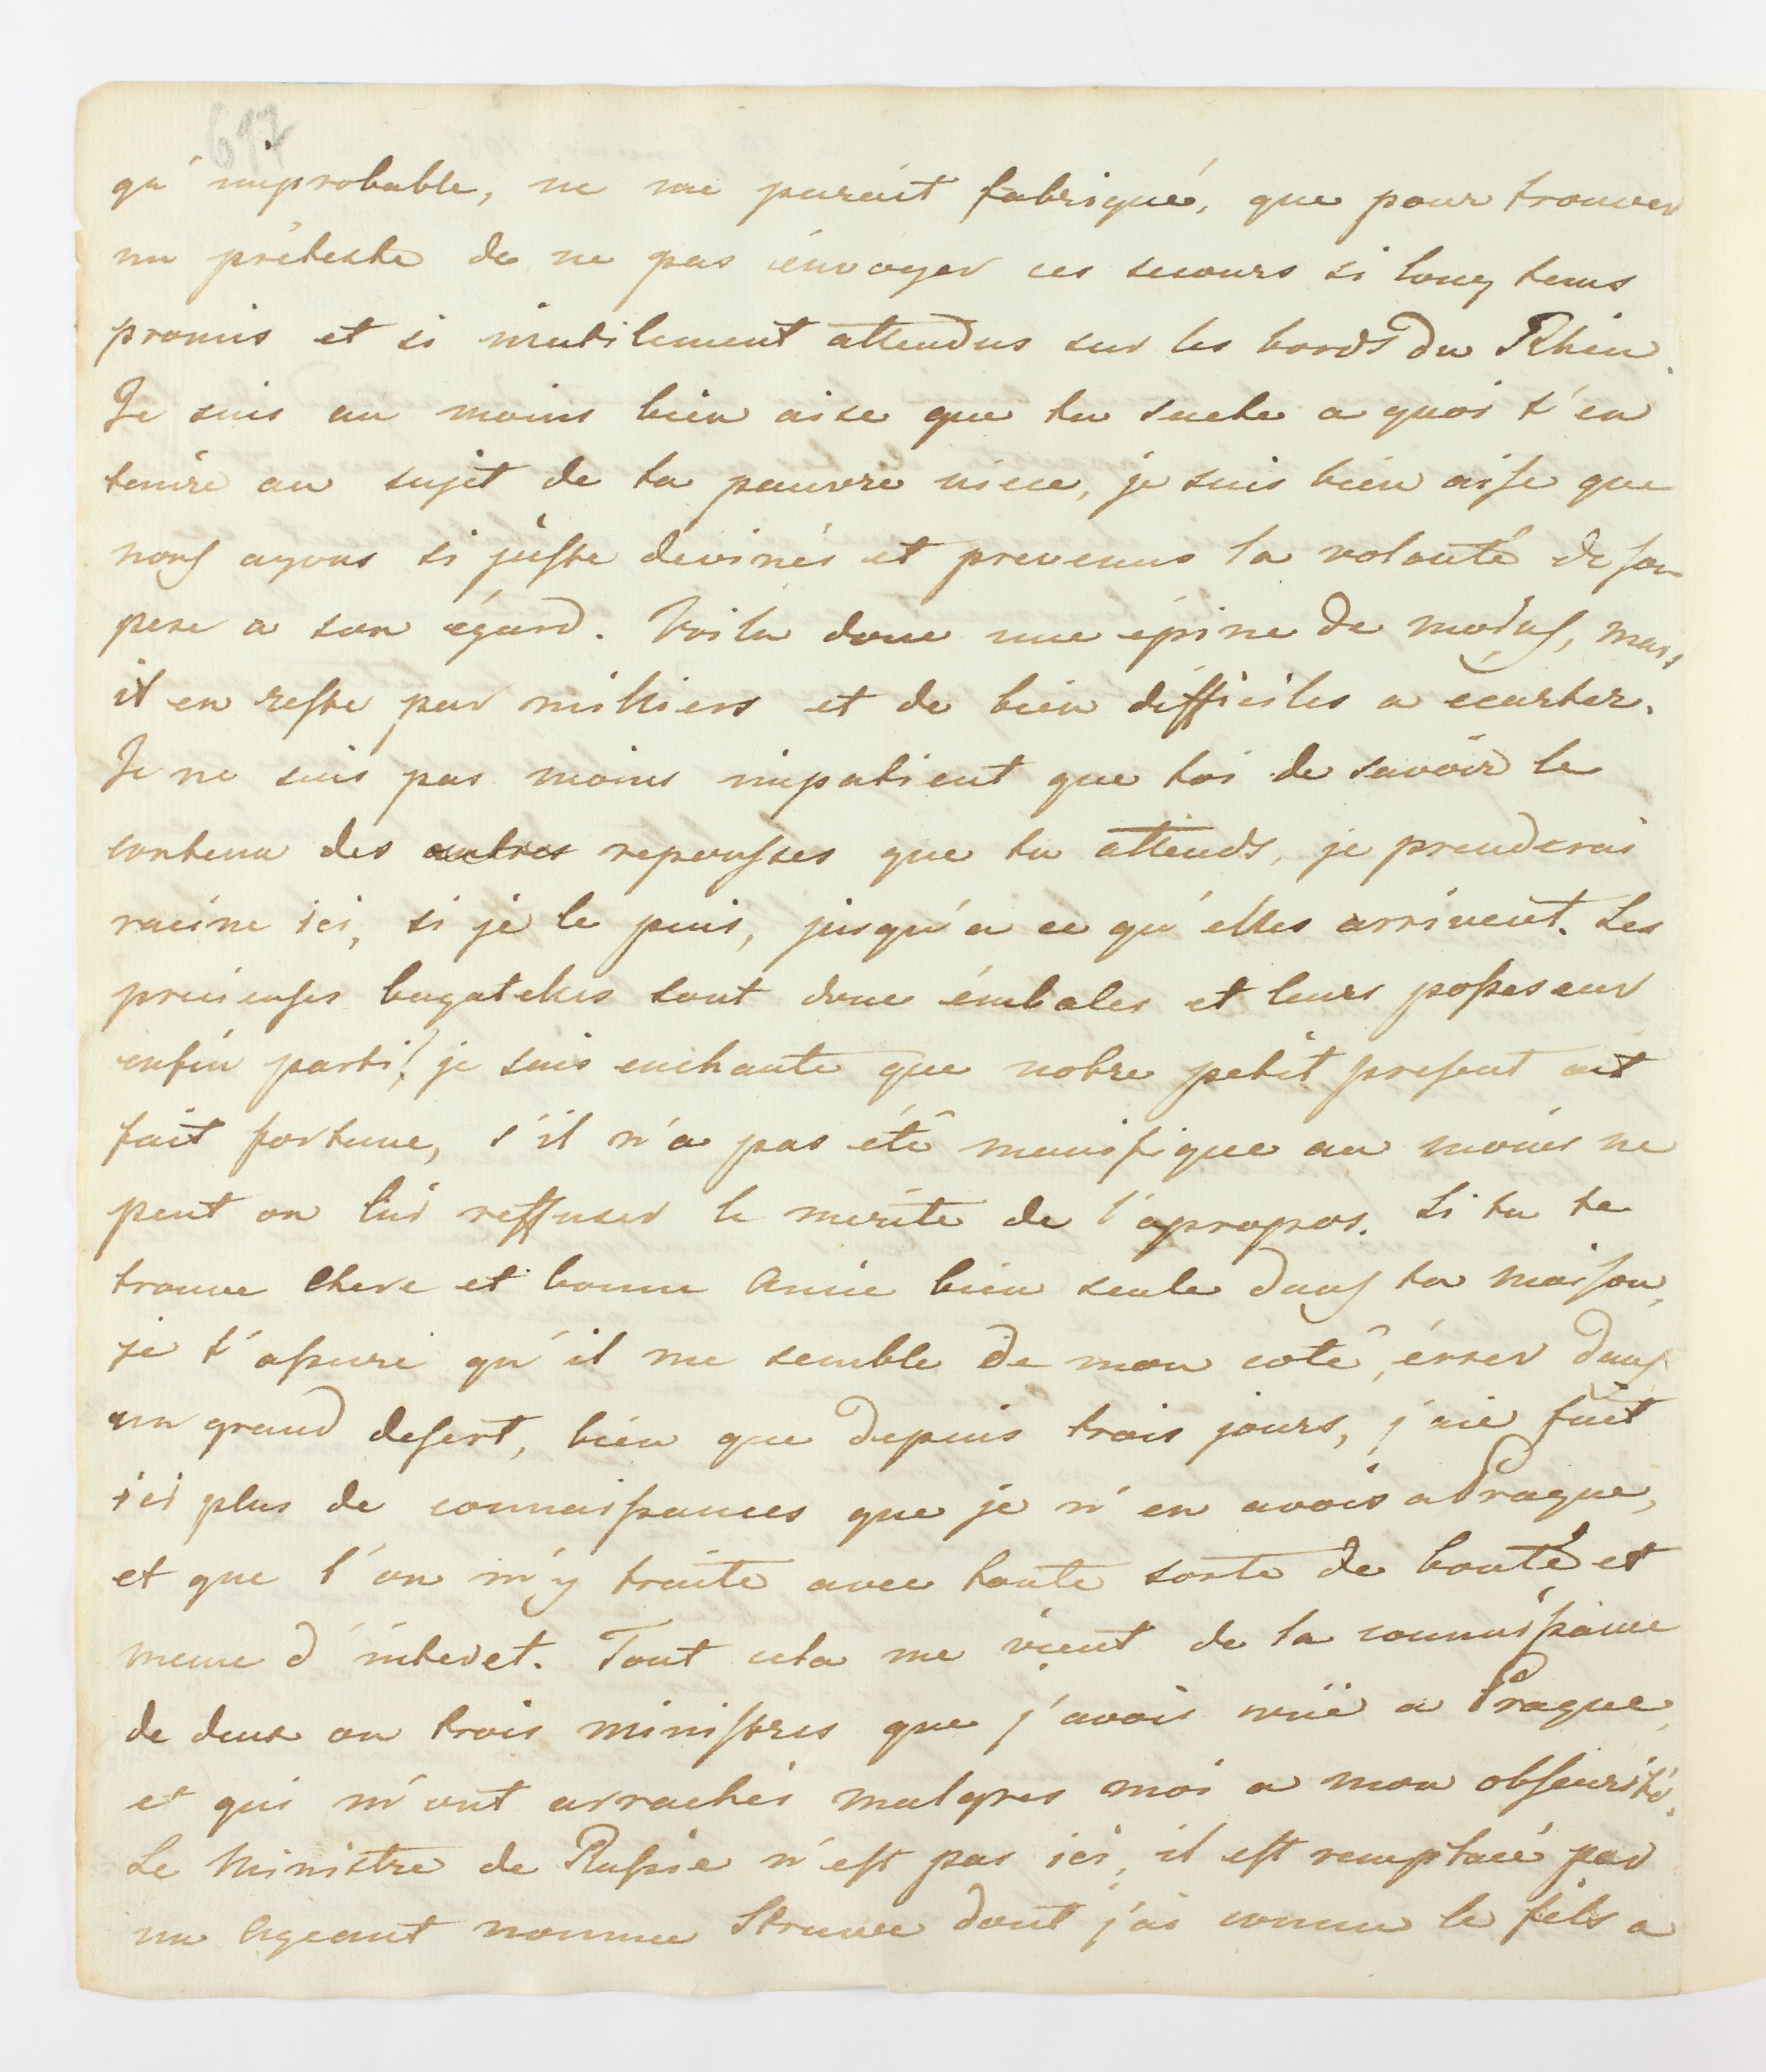 617
qu'improbable, ne me parait fabriqué, que pour trouver
un préteste de ne pas énvoyer ces secours si long tems
promis et si inutilement attendus sur les bords du Rhin.
Je suis au moins bien aise que tu sache a quoi t'en
tenire au sujet de ta pauvre niece, je suis bien aise que
nous ayons si juste devinés et prevenus la volonté de son
pere a son égard. Voila donc une épine de moins, mais
il en reste par milliers et de bien difficiles a ecarter.
Je ne suis pas moins impatient que toi de savoir le
contenu des autres reponsses que tu attends, je prenderai
racine ici, si je le puis, jusqu'a ce qu'elles arrivent. Les
precieuses bagatelles sont donc émbales et leurs posseseur
enfin parti! je suis enchante que notre petit present ait
fait fortune, s'il n'a pas été munifique au moins ne
peut on lui reffuser le merite de l'apropos. Si tu te
trouve chere et bonne Amie bien seule dans ta maison,
je t'assure qu'il me semble de mon coté, érrer dans
un grand desert, bien que depuis trois jours, j'aie fait
ici plus de connaissances que je n'en avois a Prague,
et que l'on m'y traite avec toute sorte de bonté et
meme d'interet. Tout cela me vient de la connaissance
de deux ou trois ministres que j'avois vuë a Prague,
et qui m'ont arrachés malgres moi a mon obscurité.
Le Ministre de Russie n'est pas ici, il est remplacé par
un Ageant nomme Struve dont j'ai connu le fils a